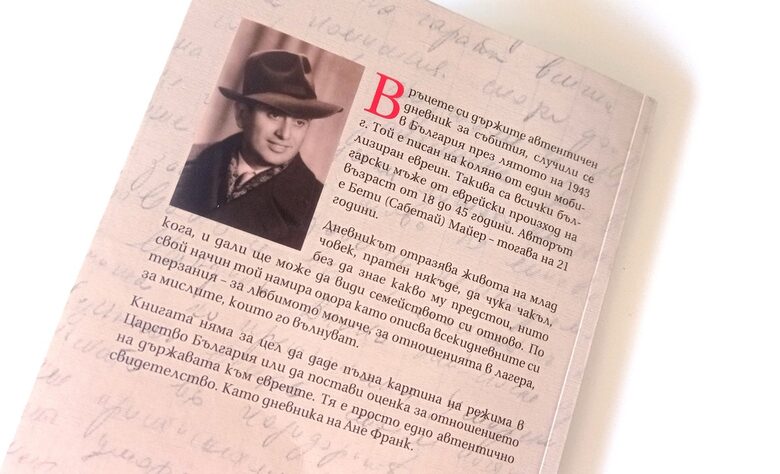 Връцете си държите автентичен
дневник за събития, случили се
в България през лятото на 1943
г. Той е писан на коляно от един моби-
лизиран евреин. Такива са всички бъл-
гарски мъже от еврейски произход на
възраст от 18 до 45 години. Авторът
е Бети (Сабетай) Майер – тогава на 21
години.
Дневникът отразява живота на млад
човек, пратен някъде, да чука чакъл,
без да знае какво му предстои, нито
кога, и дали ще може да види семейството си отново. По
свой начин той намира опора като описва всекидневните си
терзания – за любимото момиче, за отношенията в лагера,
за мислите, които го вълнуват.
Книгата няма за цел да даде пълна картина на режима в
Царство България или да постави оценка за отношението
на държавата към евреите. Тя е просто едно автентично
свидетелство. Като дневника на Ане Франк.